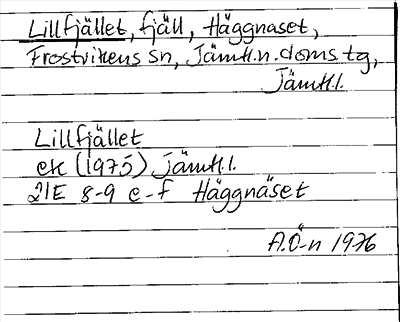 Lillfjället, fjäll, Häggnäset,
Frostvikens sn, Jämtl.n.doms.tg,
Jämtl.l.
Lillfjället
ek (1975) Jämtl.l.
21E 8-9 e-f Häggnäset
A.Ö-n 1976